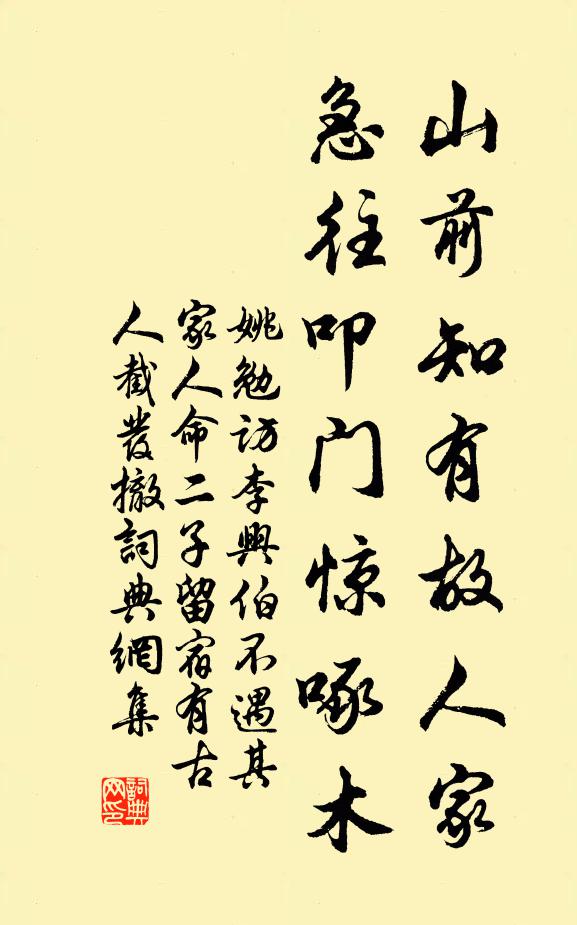 山前知有故人家
急往叩门惊啄木
姚勉访李興伯不遇其
家人命二子留宿有古
人截发撤詞典網集
詞典
网印